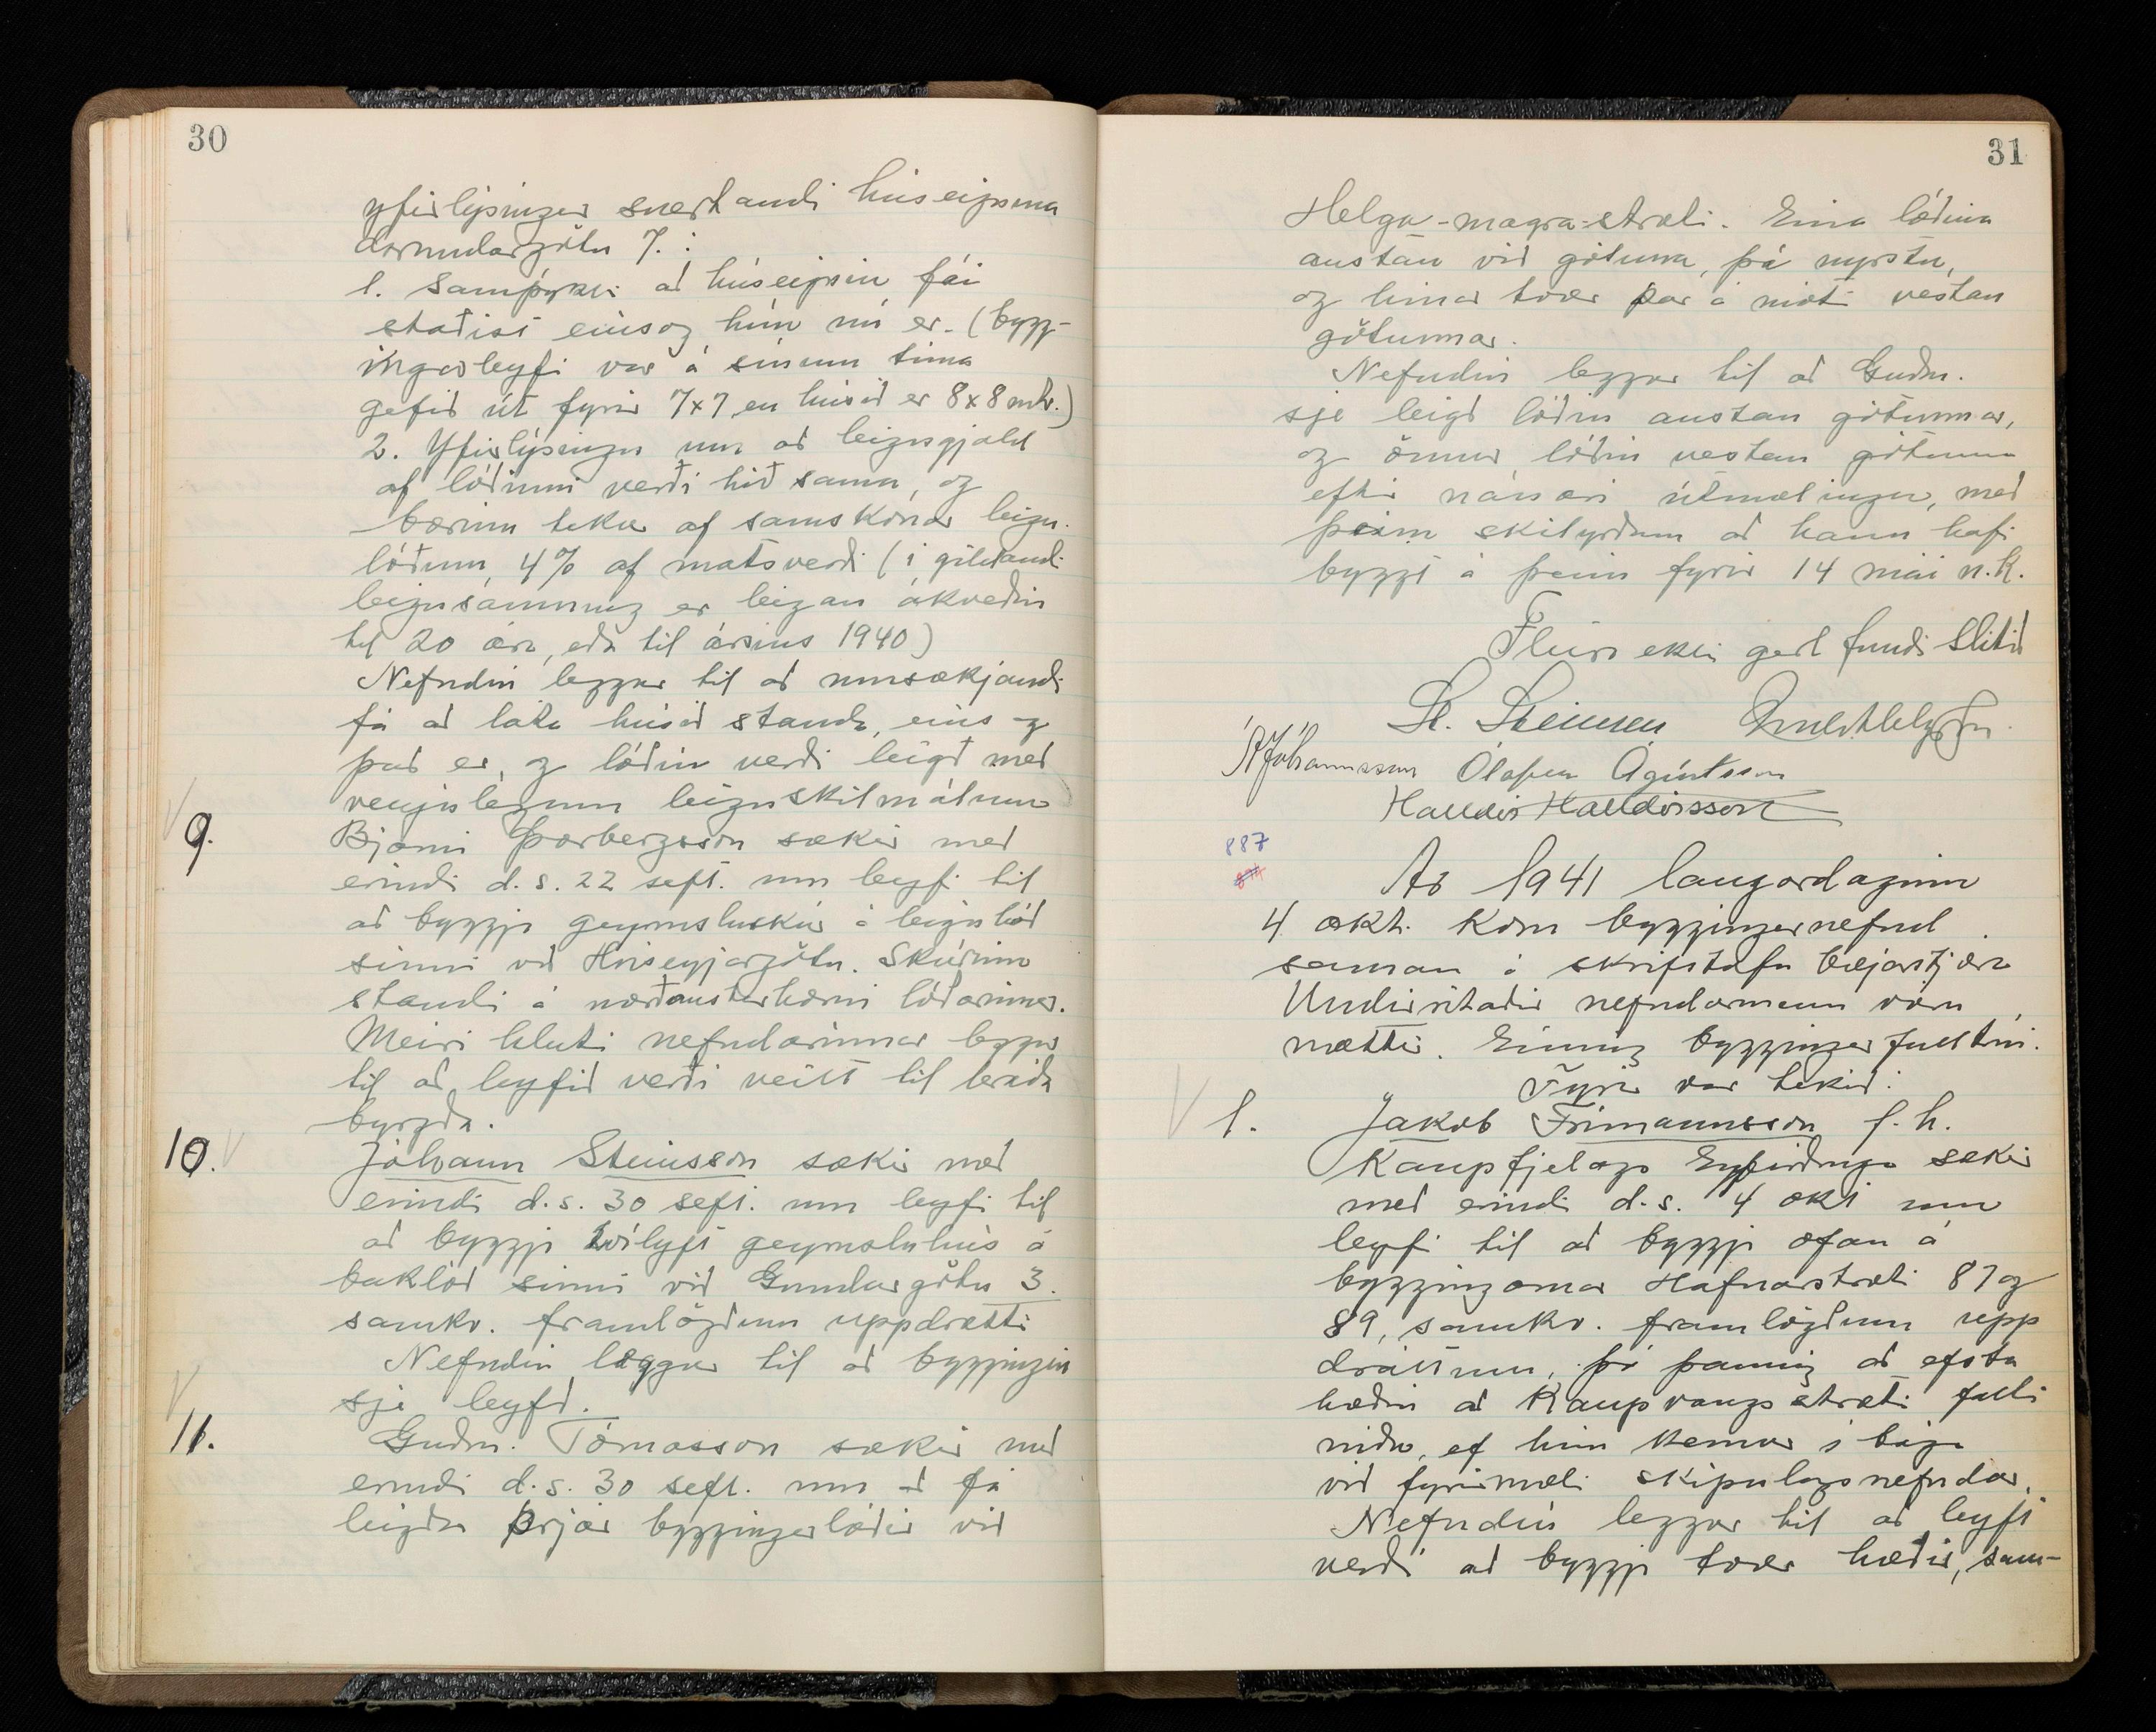 30
yfirlýsingar snertandi húseignina
1. Samþykki að húseignin fái
staðist eins og hún nú er. (bygg-
ingarleyfi var á sínum tíma
gefið út fyrir 7x7, en húsið er 8x8 mtr.)
2. Yfirlýsingu um að leigugjald
af lóðinni verði hið sama, og
bærinn tekur af samskonar leigu-
lóðum, 4% af matsverði (í gildandi
leigusamning er leigan ákveðin
til 20 ára, eða til ársins 1940)
Nefndin leggur til að umsækjandi
fái að láta húsið standa, eins og
það er, og lóðin verði leigð með
venjulegum leiguskilmálum
9. Bjarni Þorbergsson sækir með
erindi d.s. 22 sept. um leyfi til
að byggja geymsluskúr á leigulóð
sinni við Hríseyjargötu. Skúrinn
standi á norðausturhorni lóðarinnar.
Meiri hluti nefndarinnar leggur
til að leyfið verði veitt til bráða
byrgða.
10. Jóhann Steinsson sækir með
erindi d.s. 30 sept. um leyfi til
að byggja tvílyft geymsluhús á
baklóð sinni við Gránufélagsgötu 3.
samkv. framlögðum uppdrætti
Nefndin leggur til að byggingin
sje leyfð.
11. Guðm. Tómasson sækir með
erindi d.s. 30 sept. um að fá
leigðar þrjár byggingarlóðir við
31
Helga-magra-stræti. Eina lóðina
austan við götuna, þá nyrstu,
og hinar tvær þar á móti vestan
götunnar.
Nefndin leggur til að Guðm.
sje leigð lóðin austan götunnar,
og önnur lóðin vestan götunnar
eftir nánari útmælingu, með
þeim skilyrðum að hann hafi
byggt á þeim fyrir 14 maí n.k.
Fleira ekki gert fundi slitið
St. Steinsen
ÁJóhannsson Ólafur Ágústsson
Halldór Halldórsson
887
Ár 1941 laugardaginn
4. okt. kom byggingarnefnd
saman á skrifstofu bæjarstjóra
Undirritaðir nefndarmenn voru
mættir. Einnig byggingarfulltrúi.
Fyrir var tekið:
1. Jakob Frímannsson f.h.
Kaupfjelags Eyfirðinga sækir
með erindi d.s. 4 okt um
leyfi til að byggja ofan á
byggingarnar Hafnarstræti 87 og
89, samkv. framlögðum upp
dráttum, þó þannig að efsta
hæðin að Kaupvangsstræti falli
niður, ef hún kemur í bága
við fyrirmæli skipulagsnefndar.
Nefndin leggur til að leyft
verði að byggja tvær hæðir, sam-